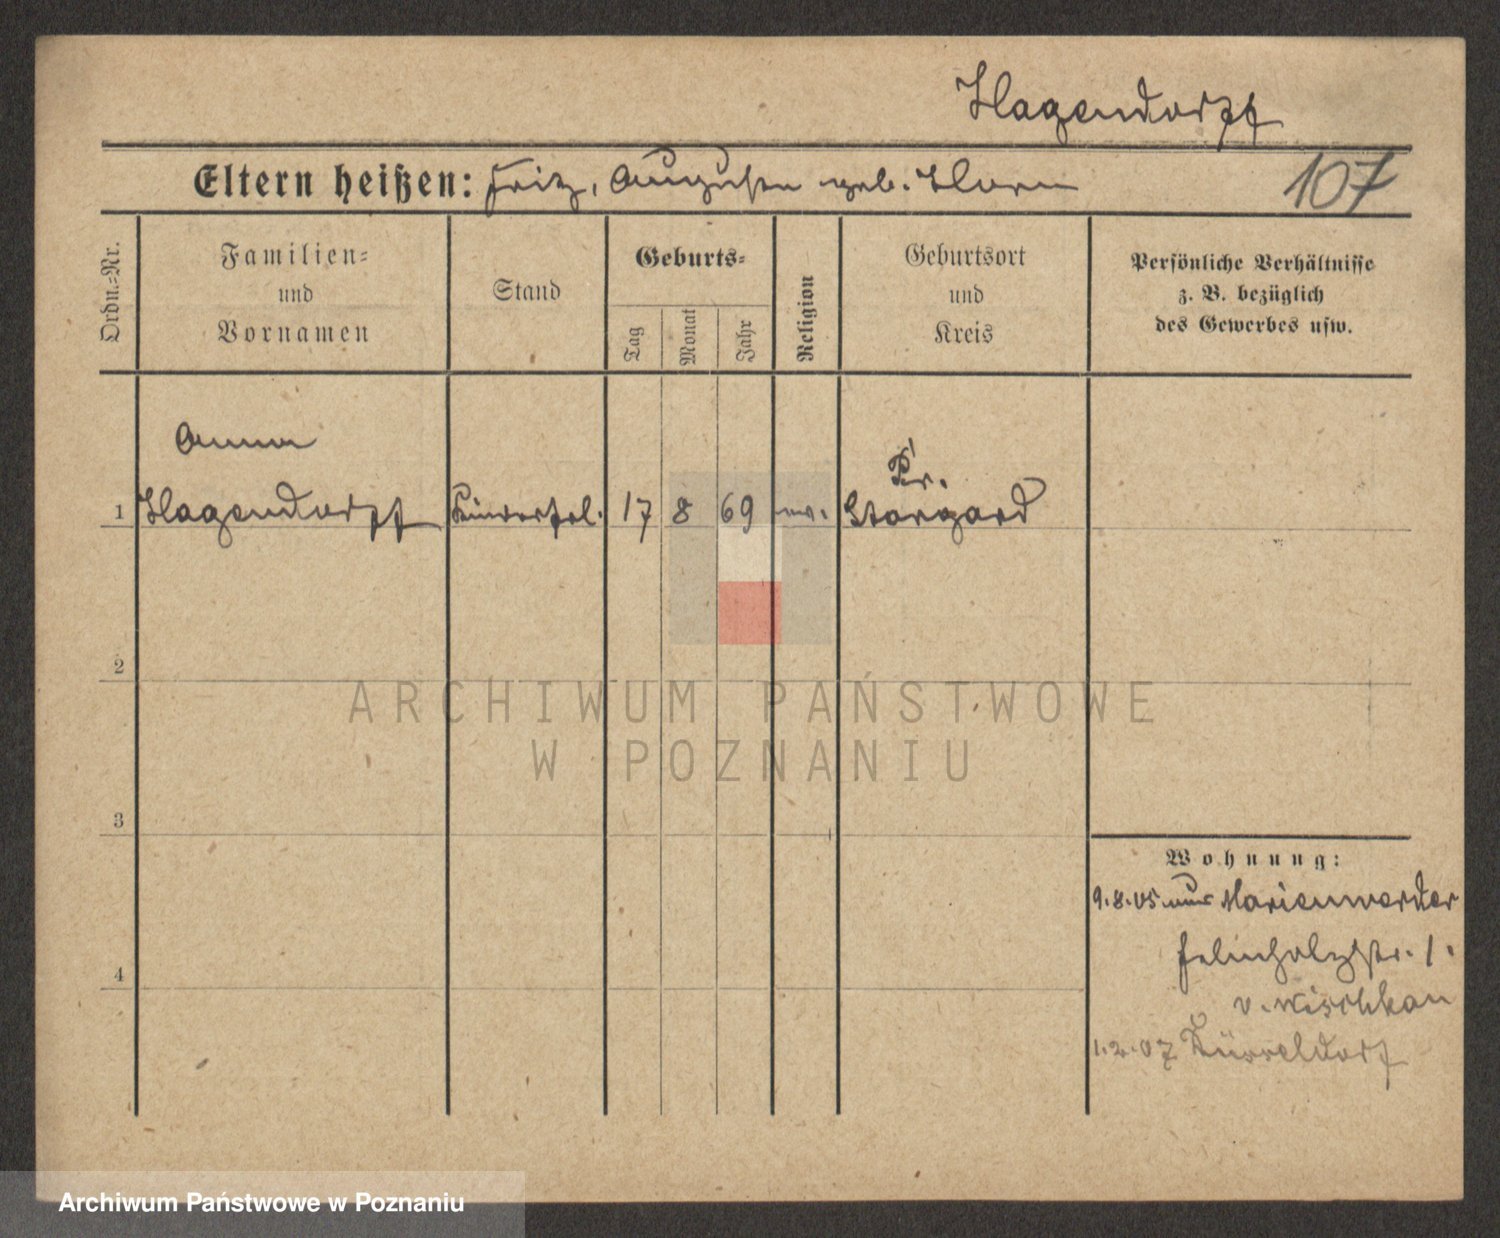 Hagendorff
Eltern heißen: Fritz, Auguste geb. Horn
107
Ordn.-Nr.
Familien-
und
Vornamen
Stand
Geburts-
Tag
Monat
Jahr
Religion
Geburtsort
und
Kreis
Persönliche Verhältnisse
z. B. bezüglich
des Gewerbes usw.
Anna
Pr.
1 Hagendorff Kinderfrl. 17 8 69 ev. Stargard
2
ARCHIWUM PAŃSTWOWE
W POZNANIU
3
Wohnung:
9.8.05 aus Marienwerder
str. 1.
4
v.
1.2.07 Düsseldorf
Archiwum Państwowe w Poznaniu